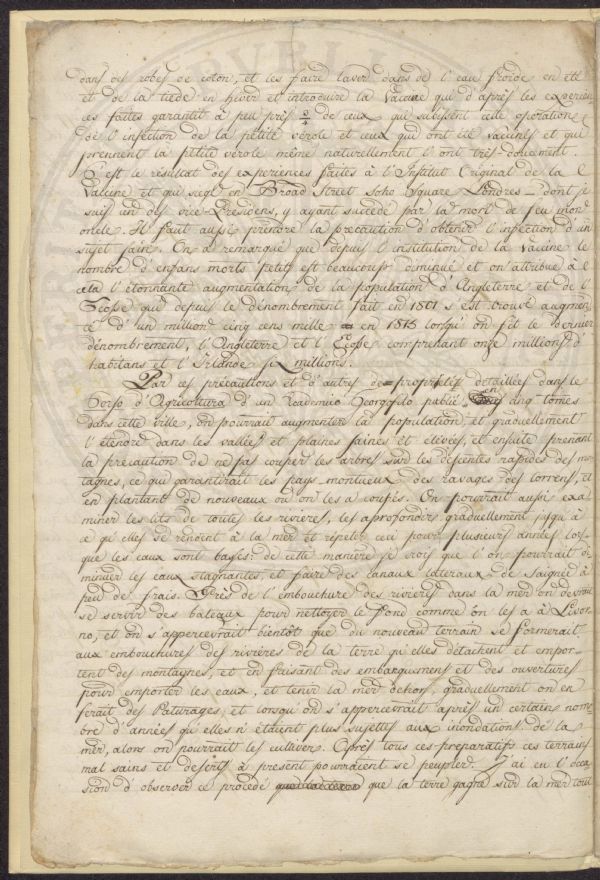 dans des robes de coton, et les faire laver dans de l'eau froide en été
et de la tiede en hiver et introduire la vaccine qui d'après les experien
ces faites garantit à peu près de ceux qui subissent cette operation
de l'infection de la petite verole et ceux qui ont été vaccinés et qui
prennent la petite verole même naturellement l'ont très-doucement.
C'est le résultat des experiences faites à l'Institut Original de la
Vaccine et qui siege en Broad Street Soho Square Londres - dont je
suis un des vice-Presidens, y ayant succedé par la mort de feu mon
oncle. Il faut aussi prendre la precaution d'obtenir l'infection d'un
sujet sain. On a remarqué que depuis l'institution de la vaccine le
nombre d'enfans morts petits est beaucoup diminué et on attribue à
cela l'étonnante augmentation de la population d'Angleterre et de l'
Ecosse qui depuis le dénombrement fait en 1801 s'est trouvé augmen
té d'un million cinq cens mille en 1815 lorsqu'on fit le dernier
dénombrement, l'Angleterre et l'Ecosse comprenant onze millions d'
habitans et l'Irlande six millions.
Par ces précautions et d'autres de propriétés détaillées dans le
Corso d'Agricoltura d'un Accademico Georgofilo publié en cinq tomes
dans cette ville, on pourrait augmenter la population, et graduellement
l'étendre dans les vallées et plaines saines et elevées, et ensuite prenant
la précaution de ne pas couper les arbres sur les descentes rapides des mon
tagnes, ce qui garantirait les pays montueux des ravages des torrens, et
en plantant de nouveaux où on les a coupés. On pourrait aussi exa
miner les lits de toutes les rivieres, les aprofondir graduellement jusqu'à
ce qu'elles se rendent à la mer et répeter ceci pour plusieurs années lors
que les eaux sont basses: de cette manière je crois que l'on pourrait di
minuer les eaux stagnantes, et faire des canaux lateraux de saignée à
peu de frais. Près de l'embouchure des rivières dans la mer on devrait
se servir des bateaux pour nettoyer le fond comme on les a à Livor
no, et on s'appercevrait bientôt que du nouveau terrain se formerait
aux embouchures des rivières de la terre qu'elles détachent et empor
tent des montagnes, et en faisant des embarquemens et des ouvertures
pour emporter les eaux, et tenir la mer dehors, graduellement on en
ferait des Paturages, et lorsqu'on s'appercevrait après un certains nom
bre d'années qu'elles n'étaient plus sujettes aux inondations de la
mer, alors on pourrait les cultiver. Après tous ces preparatifs ces terrains
mal sains et deserts à present pourraient se peupler. J'ai eu l'occa
sion d'observer ce procedé que la terre gagne sur la mer tout